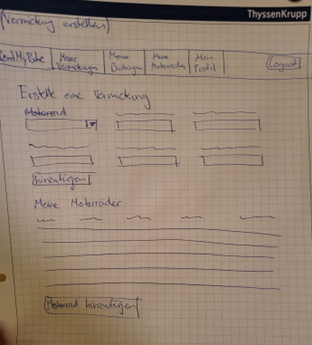 ThyssenKrupp
(Vermietung erstellen)
RentMyBike
Meine Vermietungen
Meine Buchungen
Meine Motorräder
Mein Profil
Logout
Erstelle eine Vermietung
Motorrad
hinzufügen
Meine Motorräder
Motorrad hinzufügen